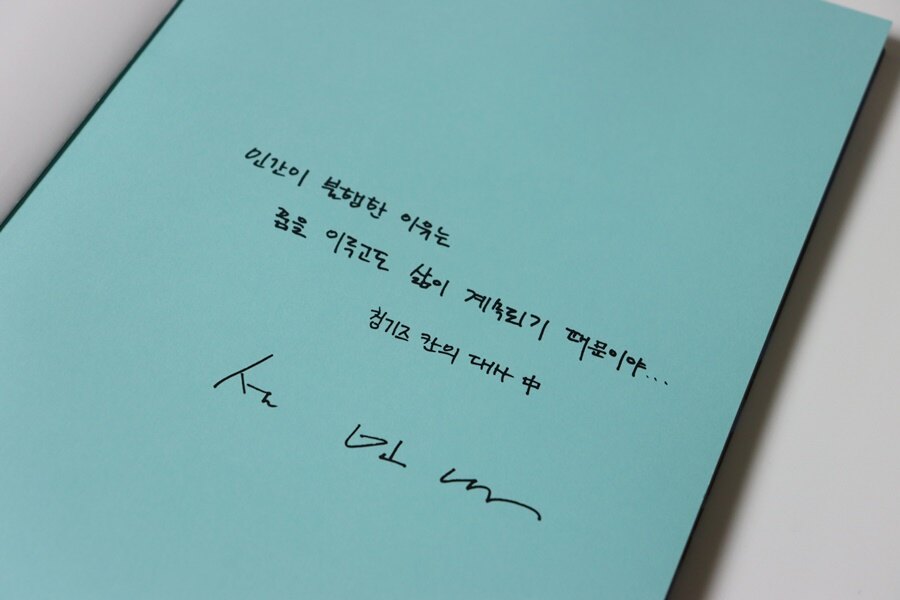 인간이 불행한 이유는
꿈을 이루고도 삶이 계속되기 때문이야...
칭기즈 칸의 대사 中